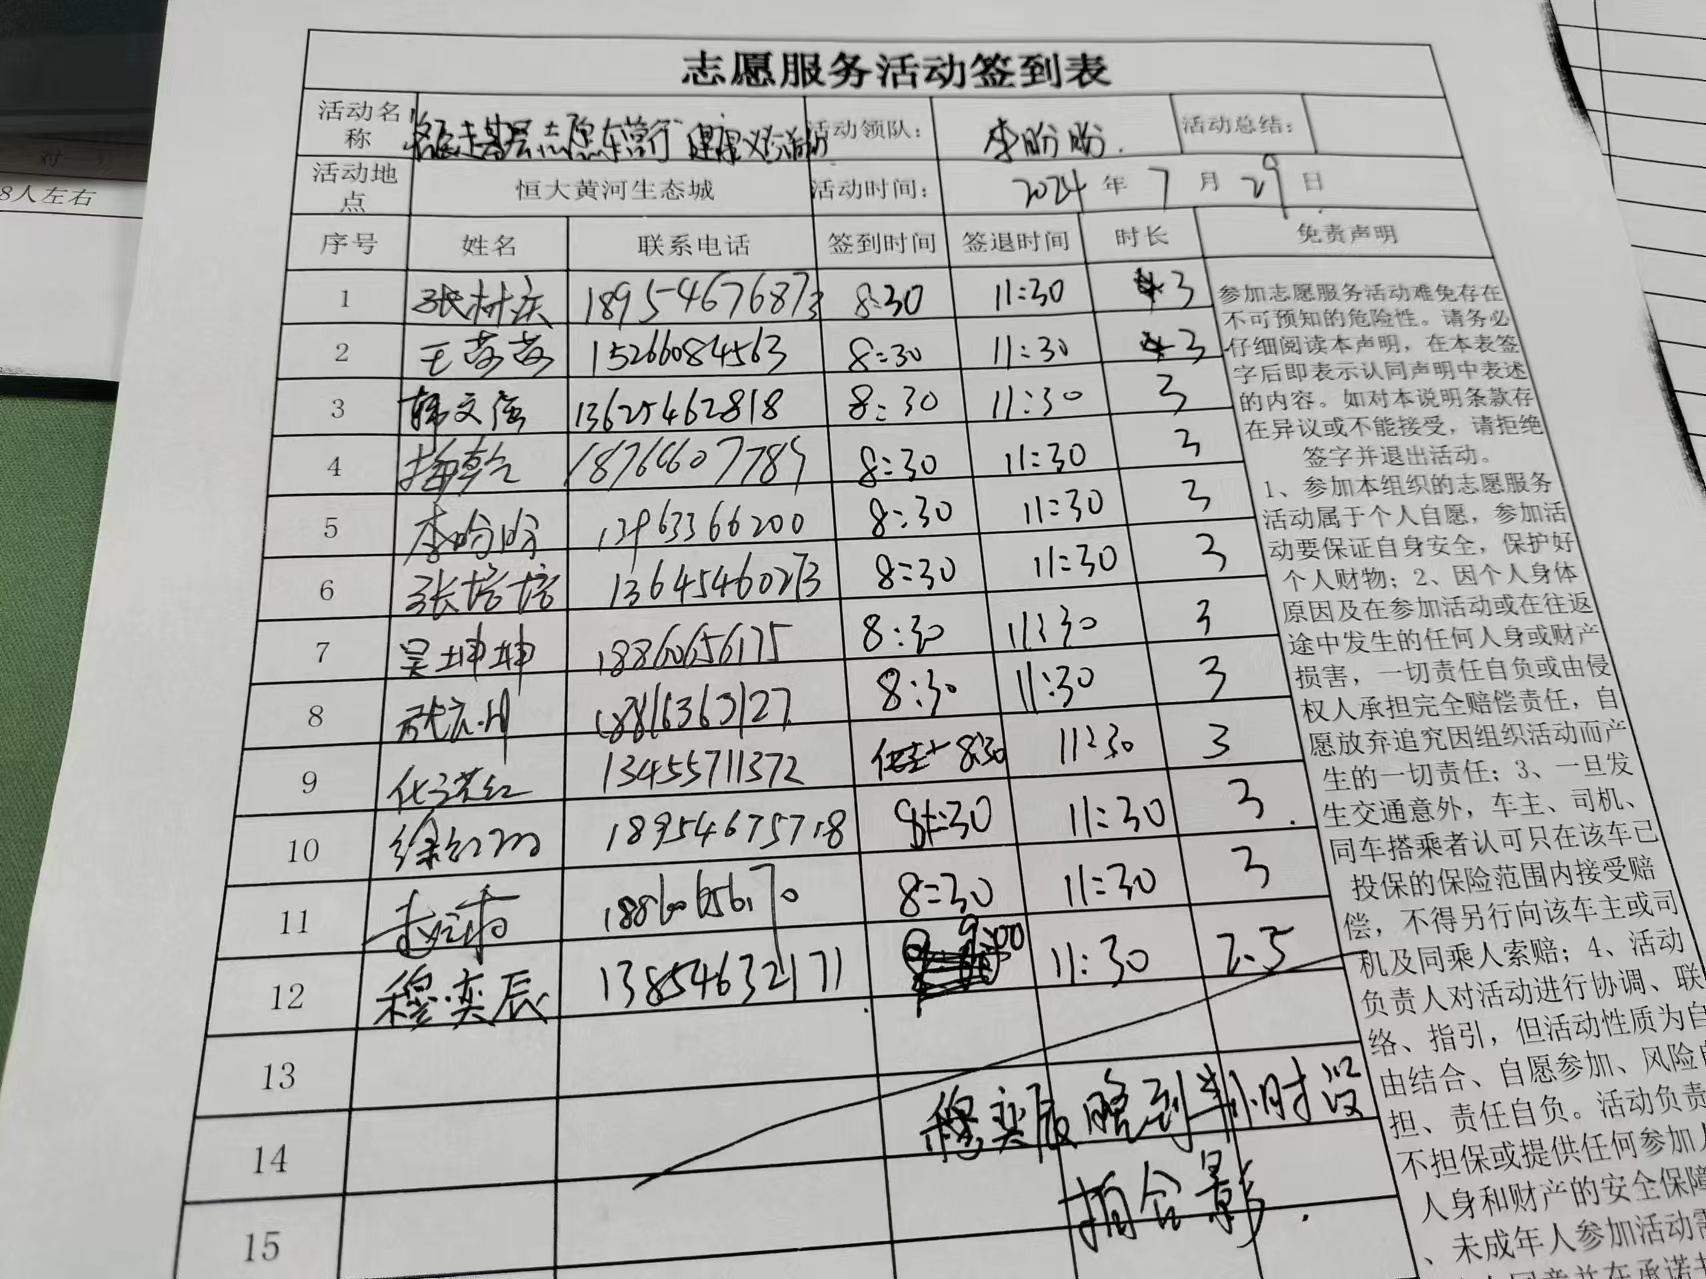 志愿服务活动签到表
活动名称 走基层志愿车营行 健康义诊活动 活动领队： 李盼盼. 活动总结：
活动地点 恒大黄河生态城 活动时间： 2024 年 7 月 29 日
序号 姓名 联系电话 签到时间 签退时间 时长 免责声明
1 张树庆 18954676873 8:30 11:30 3
2 王苗苗 15266084563 8:30 11:30 3
3 韩文强 13625462818 8:30 11:30 3
4 18766607789 8:30 11:30 3
5 李盼盼 8:30 11:30 3
6 张培培 13645460273 8:30 11:30 3
7 吴坤坤 18860656175 8:30 11:30 3
8 8:30 11:30 3
9 13455711372 8:30 11:30 3
10 徐 18954675718 8:30 11:30 3.
11 8:30 11:30 3
12 穆奕辰 13854632171 9:00 11:30 2.5
13
14
15
穆奕辰晚到半小时没
拍合影.
参加志愿服务活动难免存在
不可预知的危险性。请务必
仔细阅读本声明，在本表签
字后即表示认同声明中表述
的内容。如对本说明条款存
在异议或不能接受，请拒绝
签字并退出活动。
1、参加本组织的志愿服务
活动属于个人自愿，参加活
动要保证自身安全，保护好
个人财物；2、因个人身体
原因及在参加活动或在往返
途中发生的任何人身或财产
损害，一切责任自负或由侵
权人承担完全赔偿责任，自
愿放弃追究因组织活动而产
生的一切责任；3、一旦发
生交通意外，车主、司机、
同车搭乘者认可只在该车已
投保的保险范围内接受赔
偿，不得另行向该车主或司
机及同乘人索赔；4、活动
负责人对活动进行协调、联
络、指引，但活动性质为自
由结合、自愿参加、风险自
担、责任自负。活动负责
不担保或提供任何参加人
人身和财产的安全保障
、未成年人参加活动需
8人左右